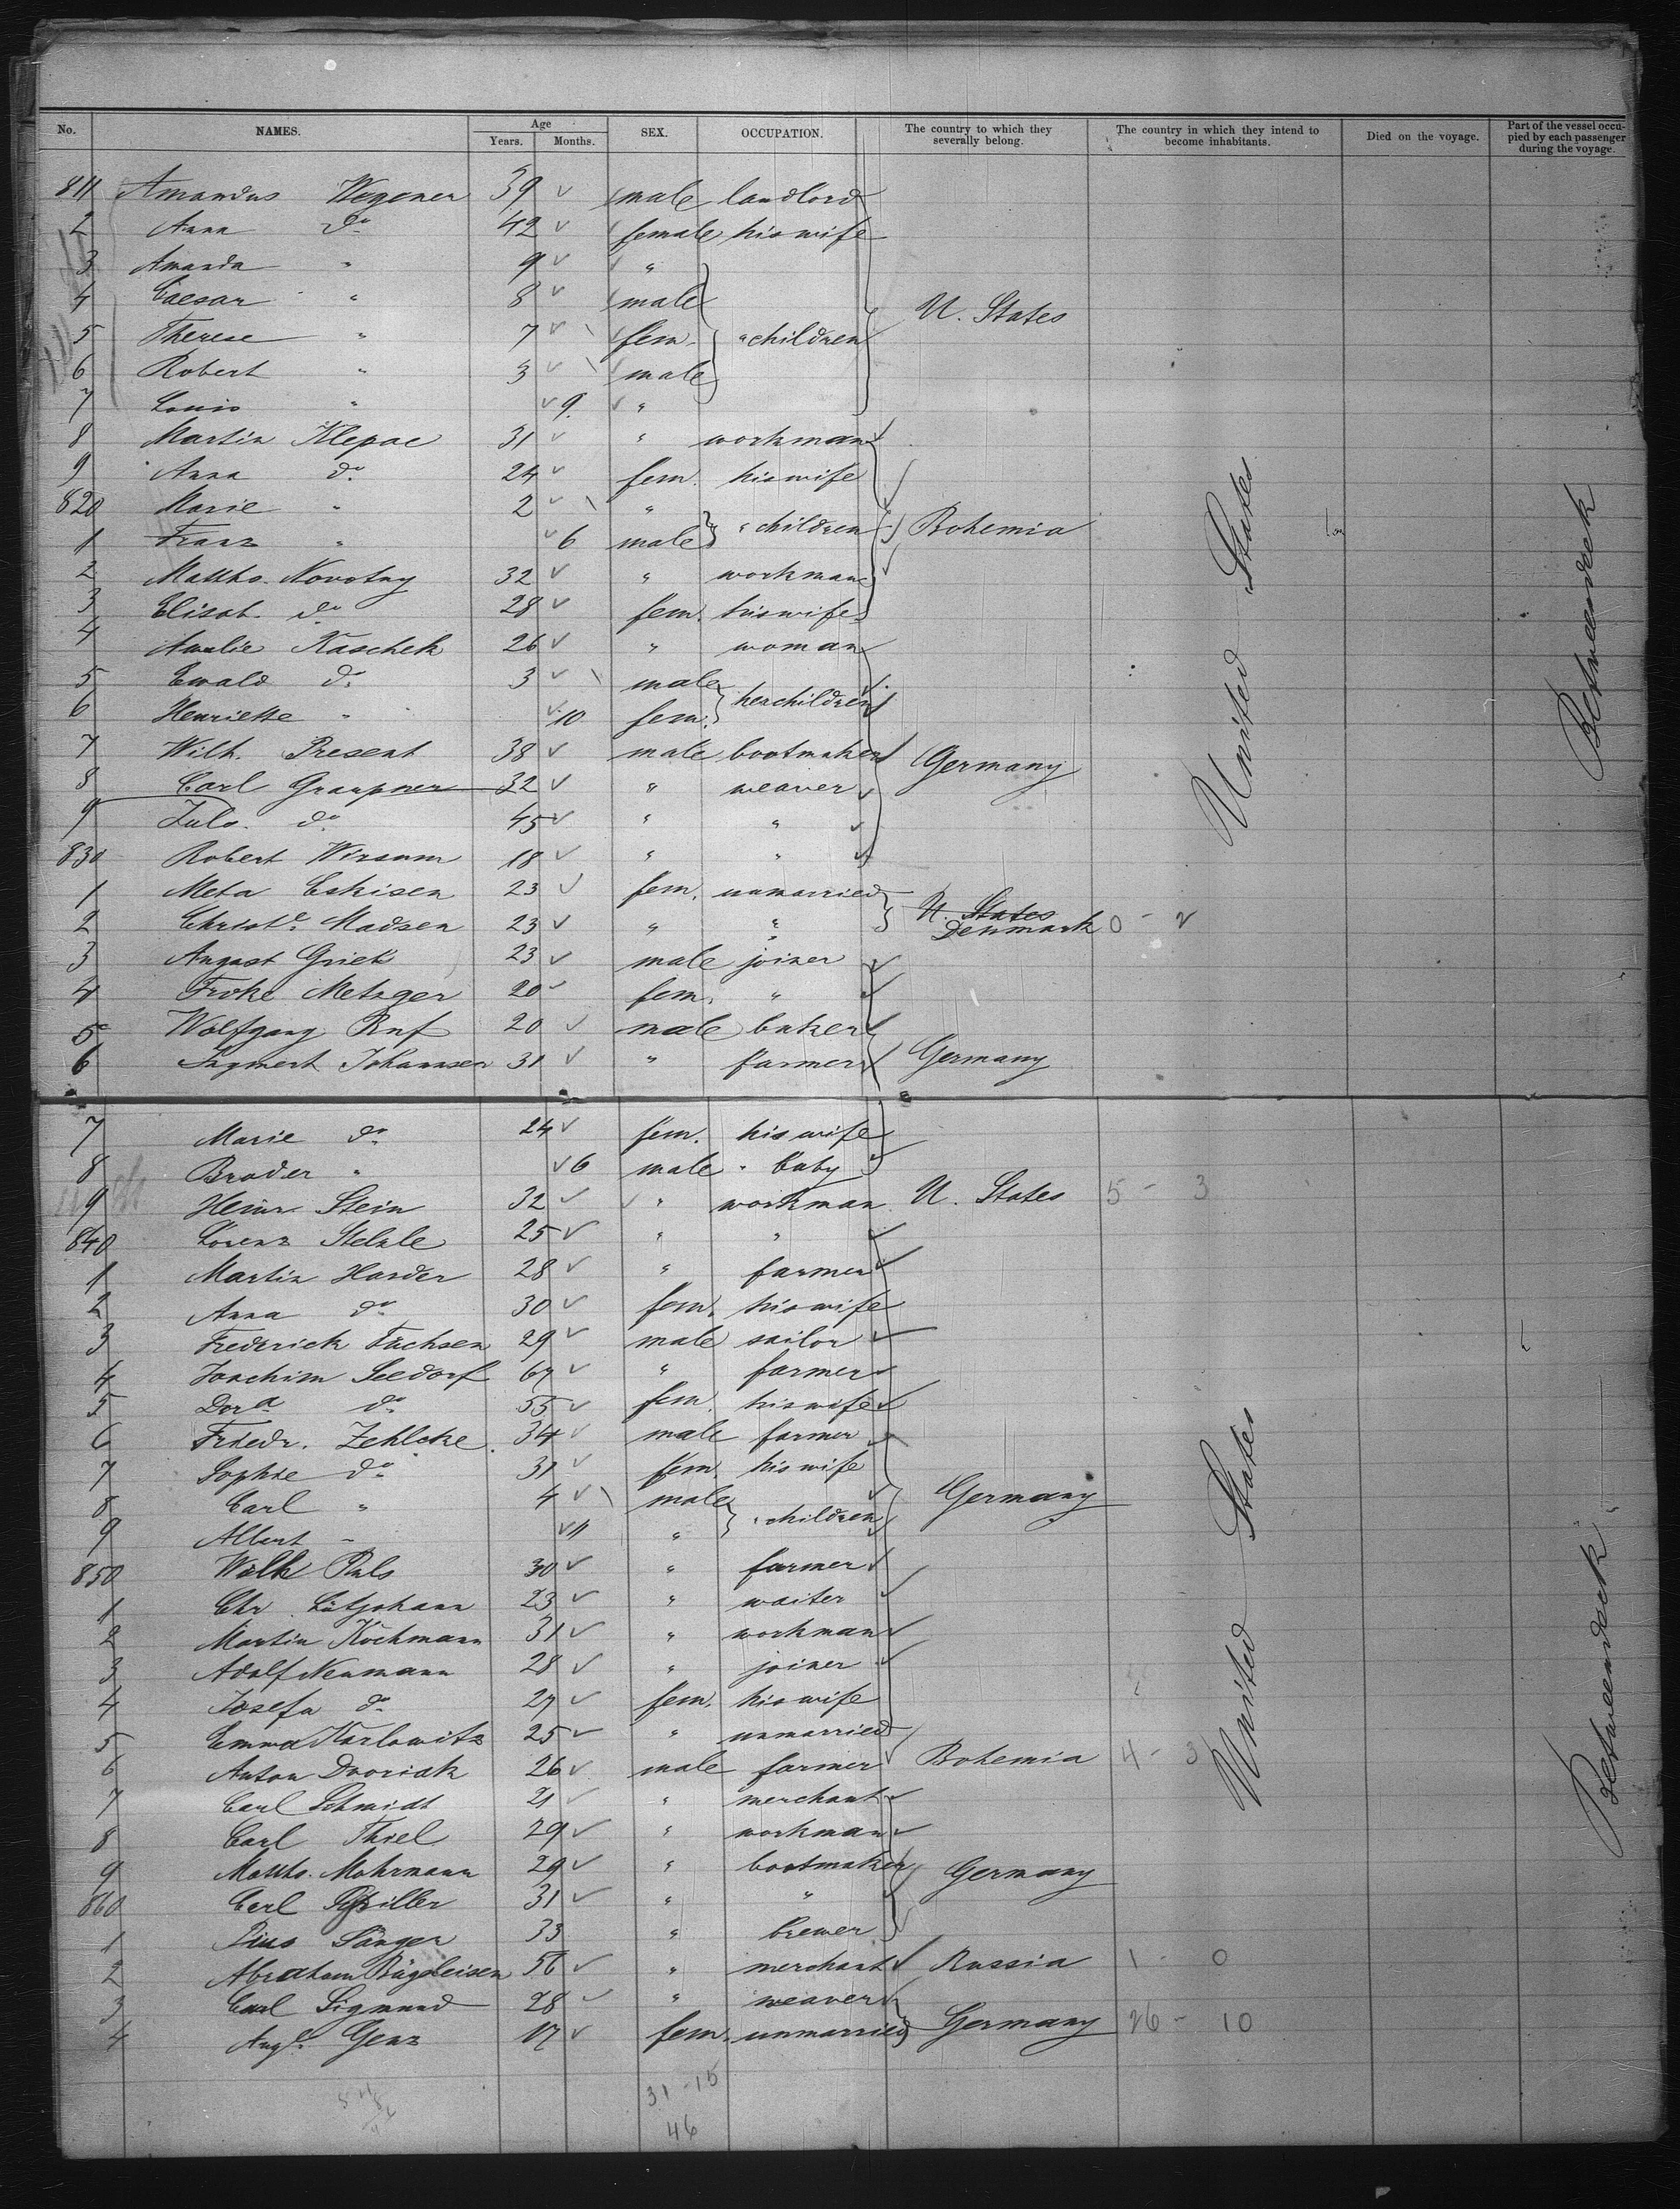 No. NAMES. Age Years. Months. SEX. OCCUPATION. The country to which they severally belong. The country in which they intend to become inhabitants. Died on the voyage. Part of the vessel occupied by each passenger during the voyage.
811 Amandus Wegener 39 male landlord
2 Anna do 42 female his wife
3 Amanda " 9 "
4 Caesar " 8 male
5 Therese " 7 fem. " children U. States
6 Robert " 3 male
7 Louis " 9 "
8 Martin Klepac 31 " workman
9 Anna do 24 fem. his wife
820 Marie " 2 "
1 Franz " 6 male " children Bohemia
2 Matths. Novotny 32 " workman
3 Elisab. do 28 fem. his wife
4 Amalie Kaschek 26 " woman
5 Ewald do 3 male
6 Henriette " 10 fem. her children
7 Wilh. Present 38 male bootmaker Germany
8 Carl Graupner 32 " weaver
9 Juls. do 45 " "
830 Robert Wirsum 18 " "
1 Meta Eskisen 23 fem. unmarried
2 Christe. Madsen 23 " " U. States Denmark 0 - 2
3 August Griek 23 male joiner
4 Froke Metzger 20 fem. "
5 Wolfgang Ruf 20 male baker
6 Ingwert Johannsen 31 " farmer Germany
United States
Betweendeck
7 Marie do 24 fem. his wife
8 Broder " 6 male " baby
9 Heinr. Stein 32 " workman U. States 5 - 3
840 Lorenz Stelzle 25 " "
1 Martin Harder 28 " farmer
2 Anna do 30 fem. his wife
3 Frederick Fuchsen 29 male sailor
4 Joachim Seedorf 67 " farmer
5 Dora do 55 fem. his wife
6 Friedr. Zehlcke 34 male farmer
7 Sophie do 31 fem. his wife
8 Carl " 4 male Germany
9 Albert " 11 " " children
850 Wilh Puls 30 " farmer
1 Chr. Lütjohann 23 " waiter
2 Martin Kochmann 31 " workman
3 Adolf Neumann 28 " joiner
4 Josefa do 27 fem. his wife
5 Emma Karlowitz 25 " unmarried
6 Anton Dvoriak 26 male farmer Bohemia 4 - 3
7 Carl Schmidt 21 " merchant
8 Carl Thiel 29 " workman
9 Matths. Mohrmann 29 " bootmaker Germany
860 Carl 31 " "
1 Pius Sänger 33 " brewer
2 Abraham Bügeleisen 56 " merchant Russia 1 - 0
3 Carl Sigmund 28 " weaver
4 Augte. Genz 17 fem. unmarried Germany 26 - 10
United States
Betweendeck
31 - 15
46